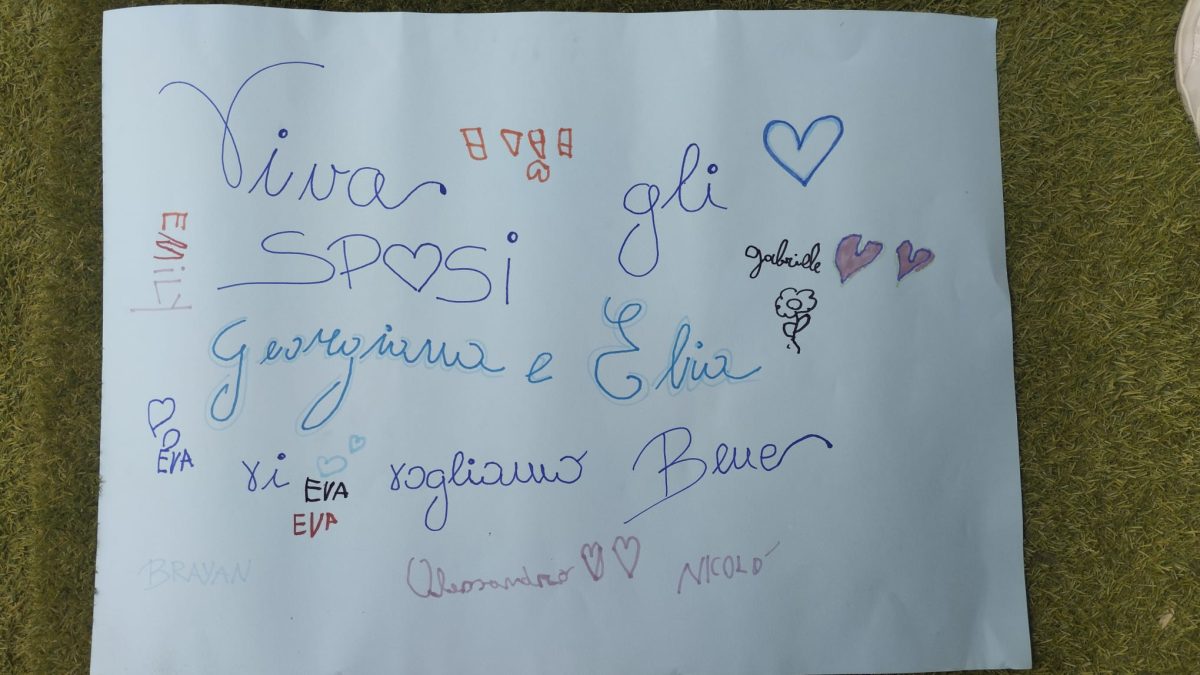 Viva gli
SPOSI
EMILY
gabriele
Georgiana e Elia
EVA
vi vogliamo Bene
EVA
EVA
BRAYAN
Alessandro
NICOLÓ